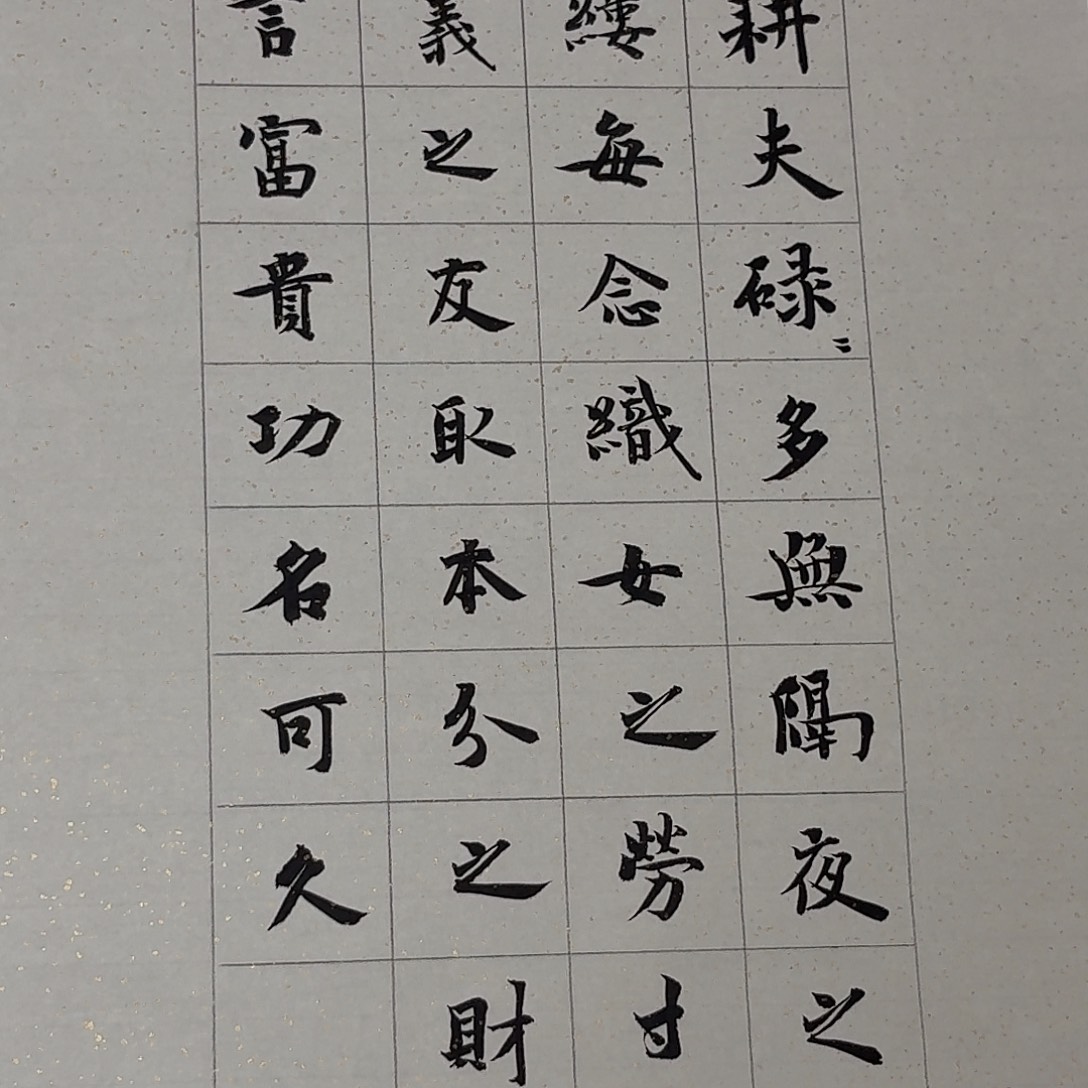 耕夫碌〻多無隔夜之
縷每念織女之勞寸
義之友取本分之財
言富貴功名可久